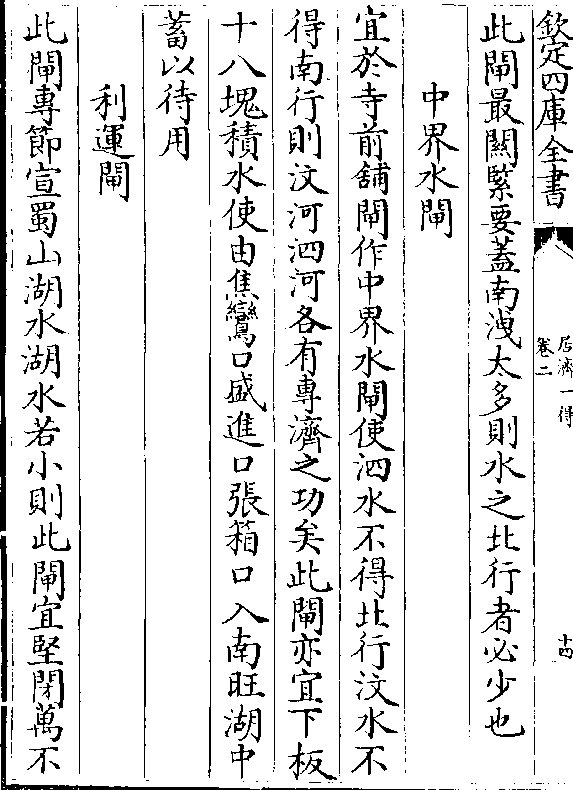 欽定四庫全書
居濟一得
卷二
十四
此閘最關緊要蓋南洩太多則水之北行者必少也
中界水閘
宜於寺前舖閘作中界水閘使泗水不得北行汶水不
得南行則汶河泗河各有專濟之功矣此閘亦宜下板
十八塊積水使由焦鸞口盛進口張箱口入南旺湖中
蓄以待用
利運閘
此閘專節宣蜀山湖水湖水若小則此閘宜堅閉萬不